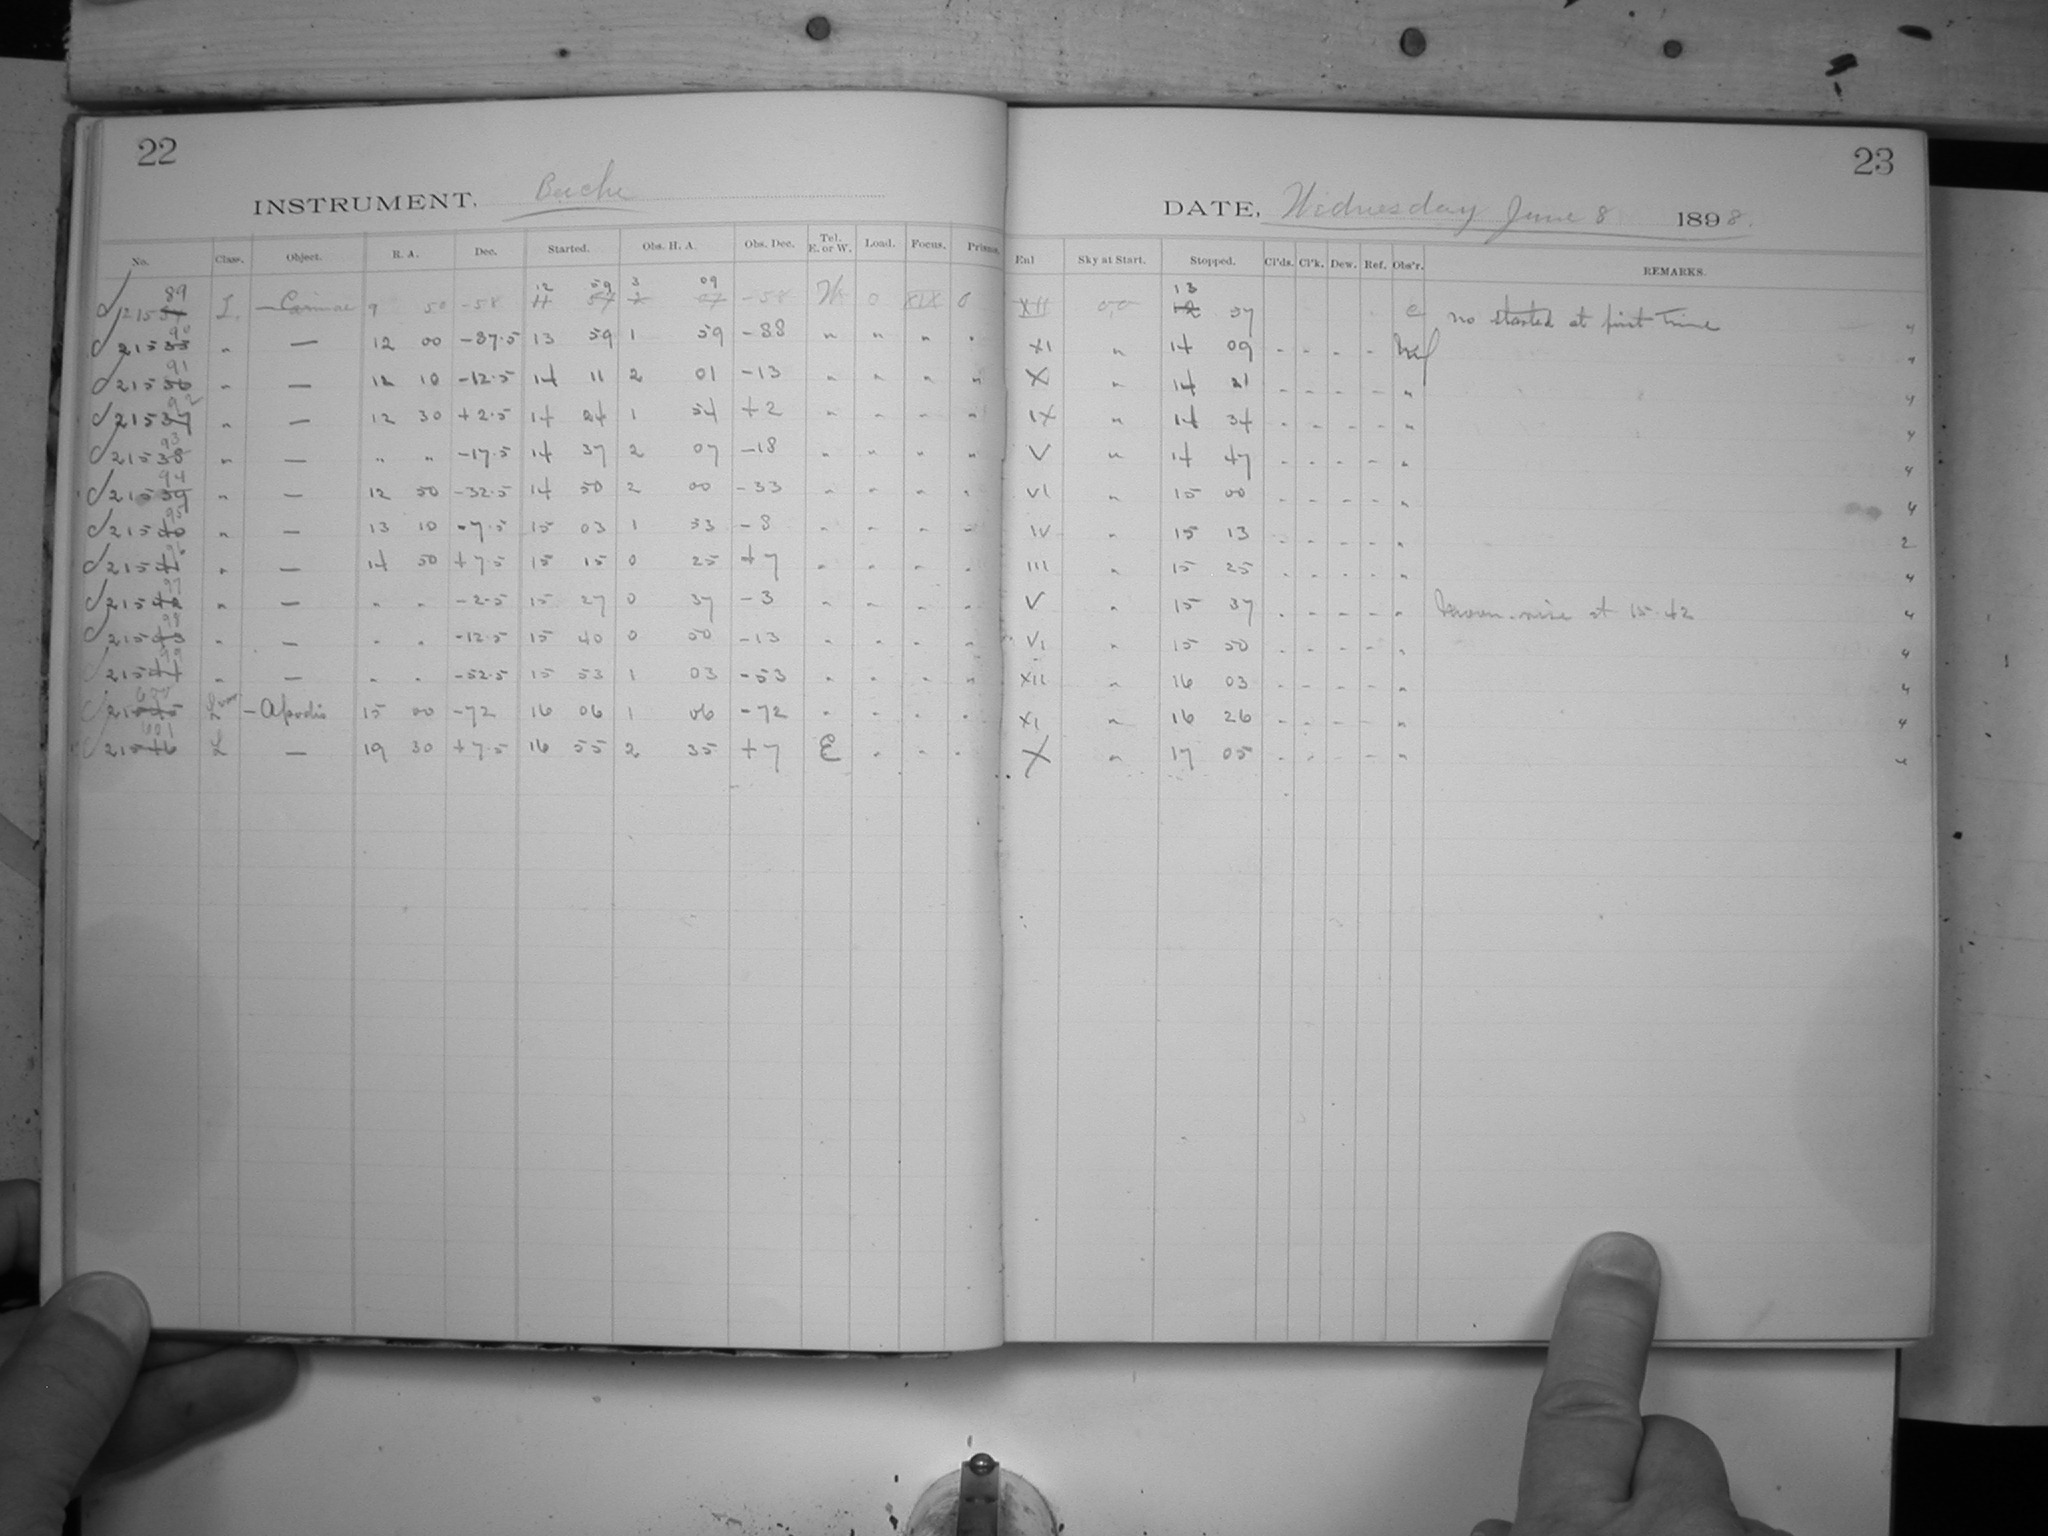 22
INSTRUMENT, Bache
No. Class. Object. R. A. Dec. Started. Obs. H. A. Obs. Dec. Tel. E. or W. Load. Focus. Prisms.
89 12 59 3 09
215 I. — Carinae 9 50 -58 -58 W 0 XIX 0
90
21535 " — 12 00 -87.5 13 59 1 59 -88 " " " "
91
21536 " — 12 10 -12.5 14 11 2 01 -13 " " " "
92
21537 " — 12 30 +2.5 14 24 1 54 +2 " " " "
93
21538 " — " " -17.5 14 37 2 07 -18 " " " "
94
21539 " — 12 50 -32.5 14 50 2 00 -33 " " " "
95
21540 " — 13 10 -7.5 15 03 1 53 -8 " " " "
96
21541 " — 14 50 +7.5 15 15 0 25 +7 " " " "
97
21542 " — " " -2.5 15 27 0 37 -3 " " " "
98
21543 " — " " -12.5 15 40 0 50 -13 " " " "
99
21544 " — " " -52.5 15 53 1 03 -53 " " " "
600
21545 — Apodis 15 00 -72 16 06 1 06 -72 " " " "
601
21546 — 19 30 +7.5 16 55 2 35 +7 E " " "
23
DATE, Wednesday June 8 1898.
Enl Sky at Start. Stopped. Cl'ds. Cl'k. Dew. Ref. Obs'r. REMARKS.
13
XII 00 12 57 C no started at first time 4
XI " 14 09 " " " " 4
X " 14 21 " " " " " 4
IX " 14 34 " " " " " 4
V " 14 47 " " " " " 4
VI " 15 00 " " " " " 4
IV " 15 13 " " " " " 2
III " 15 25 " " " " " 4
V " 15 37 " " " " " Moon-rise at 15.42 4
VI " 15 50 " " " " " 4
XII " 16 03 " " " " " 4
XI " 16 26 " " " " " 4
X " 17 05 " " " " "